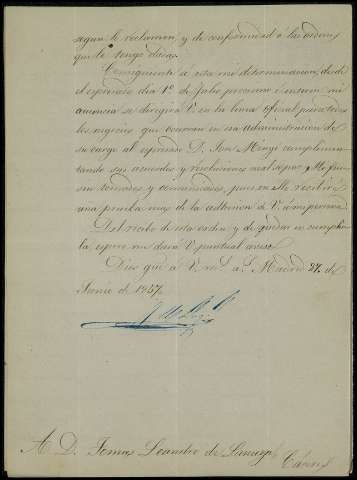 segun lo reclamen, y de conformidad á las ordenes
que le tengo dadas.
Consiguiente á esta mi determinacion, desde
el espresado dia 1º de Julio procsimo é interin mi
ausencia se dirigirá V. en la linea oficial para todos
los negocios que ocurran en esa administracion de
su cargo al espresado D. José Minyi cumplimen-
tando sus acuerdos y resoluciones cual si por Mi fue-
sen tomados y comunicados, pues en ello recibiré
una prueba mas de la adhesion de V. á mi persona.
Del recibo de esta orden y de quedar en cumplir-
la espero me dará V. puntual aviso.
Dios gue á V. m. a. Madrid 27 de
Junio de 1857.
A D. Tomas Leandro de